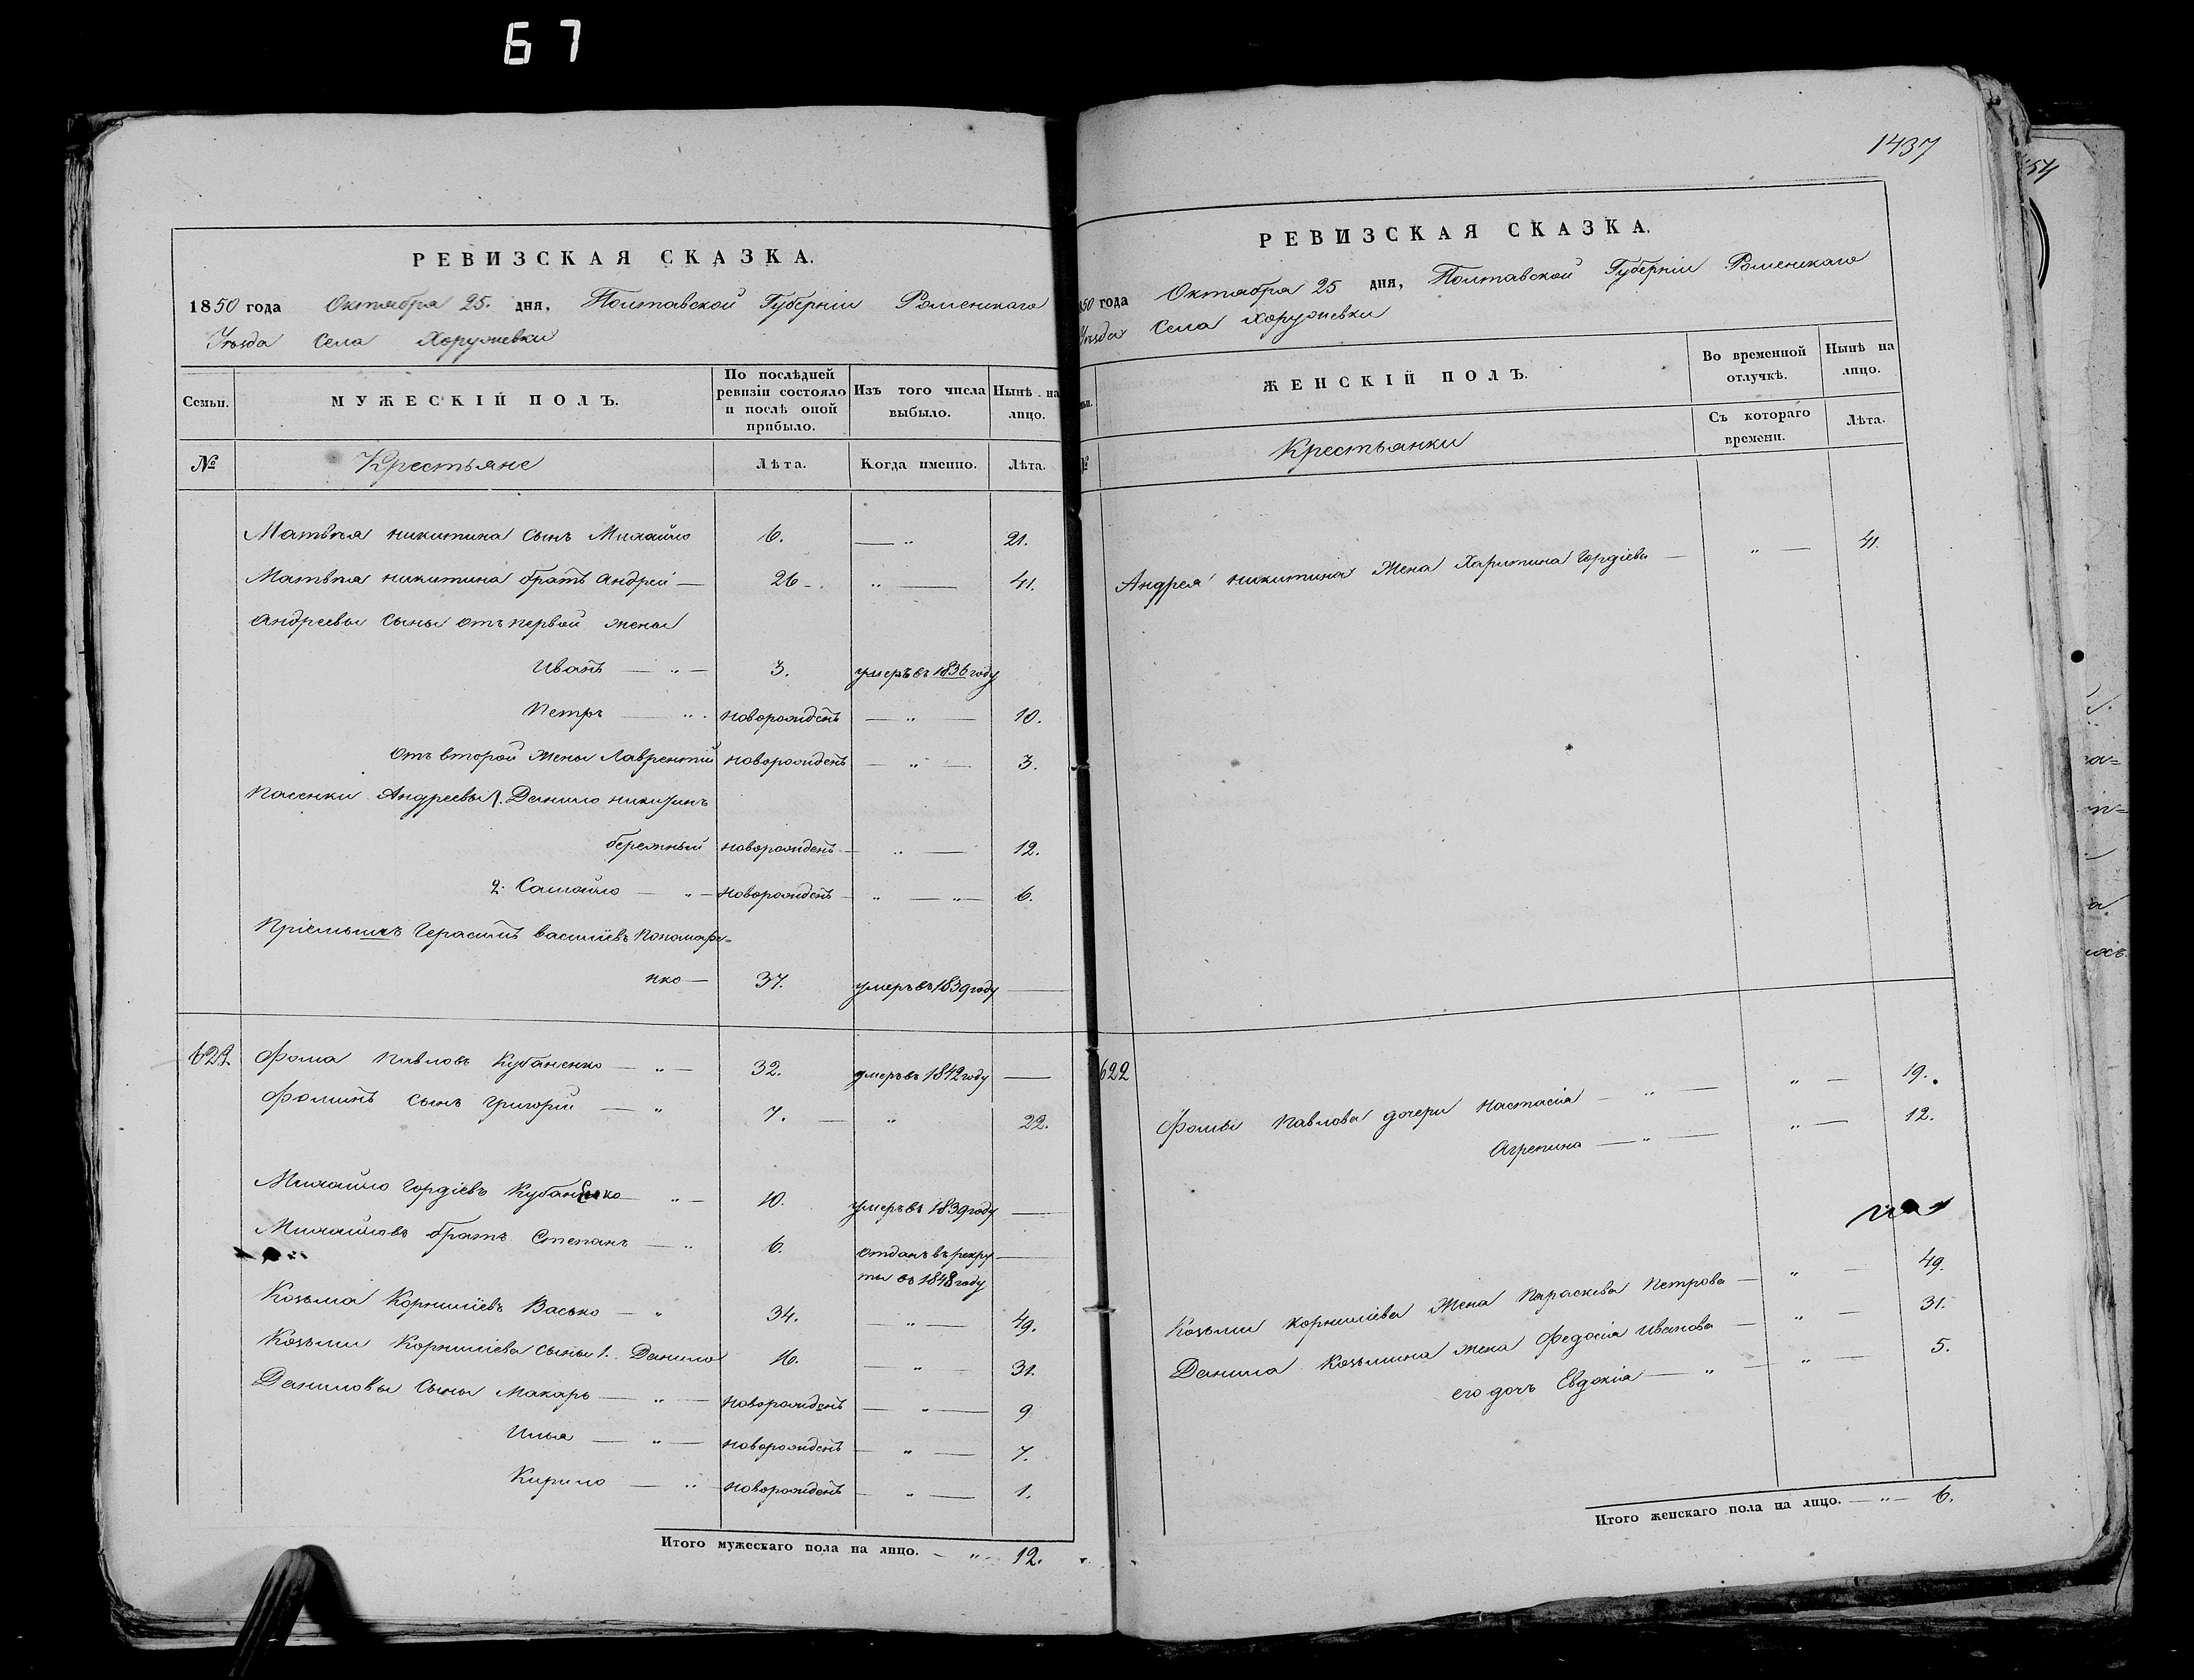 67
РЕВИЗСКАЯ СКАЗКА.
1850 года Октября 25. дня, Полтавской Губерніи Роменскаго
Уѣзда Села Хоружевки
Семьи.
МУЖЕСКІЙ ПОЛЪ.
По послѣдней ревизіи состояло и послѣ оной прибыло.
Изъ того числа выбыло.
Нынѣ на лицо.
№ Крестьяне Лѣта. Когда именно. Лѣта.
Матвѣя Никитина сынъ Михайло 6. — " 21.
Матвѣя Никитина братъ Андрей — 26 — " — 41.
Андреевы сыны отъ первой жены
Иванъ — " — 3. умеръ въ 1836 году
Петръ — " новорожденъ — " — 10.
Отъ второй жены Лаврентій новорожденъ — " — 3.
Пасенки Андреевы 1. Данило Никитинъ
бережный новорожденъ — " — 12.
2. Самойло — " — новорожденъ " — " — 6.
Пріемышъ Герасимъ Василіевъ Пономаре-
нко — 37. умеръ въ 1839 году —
622. Фома Павловъ Кубаненко — " — 32. умеръ въ 1842 году —
Фоминъ сынъ Григорій — " 7. — " 22.
Михайло Гордіевъ Кубаненко — " — 10. умеръ въ 1839 году —
Михайловъ братъ Степанъ — " 6. отданъ въ рекру- —
ты въ 1848 году
Козьма Корниліевъ Васько — " 34. — " — 49.
Козьмы Корниліева сыны 1. Данило 16. — " — 31.
Даниловы сыны Макаръ — " — новорожденъ — " — 9
Илья — " — новорожденъ — " — 7.
Кирило — " новорожденъ — " — 1.
Итого мужескаго пола на лицо. — " — 12.
1437
РЕВИЗСКАЯ СКАЗКА.
50 года Октября 25 дня, Полтавской Губерніи Роменскаго
Уѣзда Села Хоружевки
ЖЕНСКІЙ ПОЛЪ.
Во временной отлучкѣ.
Нынѣ на лицо.
Крестьянки
Съ котораго времени.
Лѣта.
Андрея Никитина жена Харитина Гордіева — " — 41.
622
Фомы Павлова дочери Настасія — " — " — 19.
Агрепина — " — " — 12.
Козьмы Корниліева жена Параскева Петрова — " — 49.
Данила Козьмина жена Федосія Иванова — " — 31.
его дочь Евдокія — " — " — 5.
Итого женскаго пола на лицо. — " — 6.